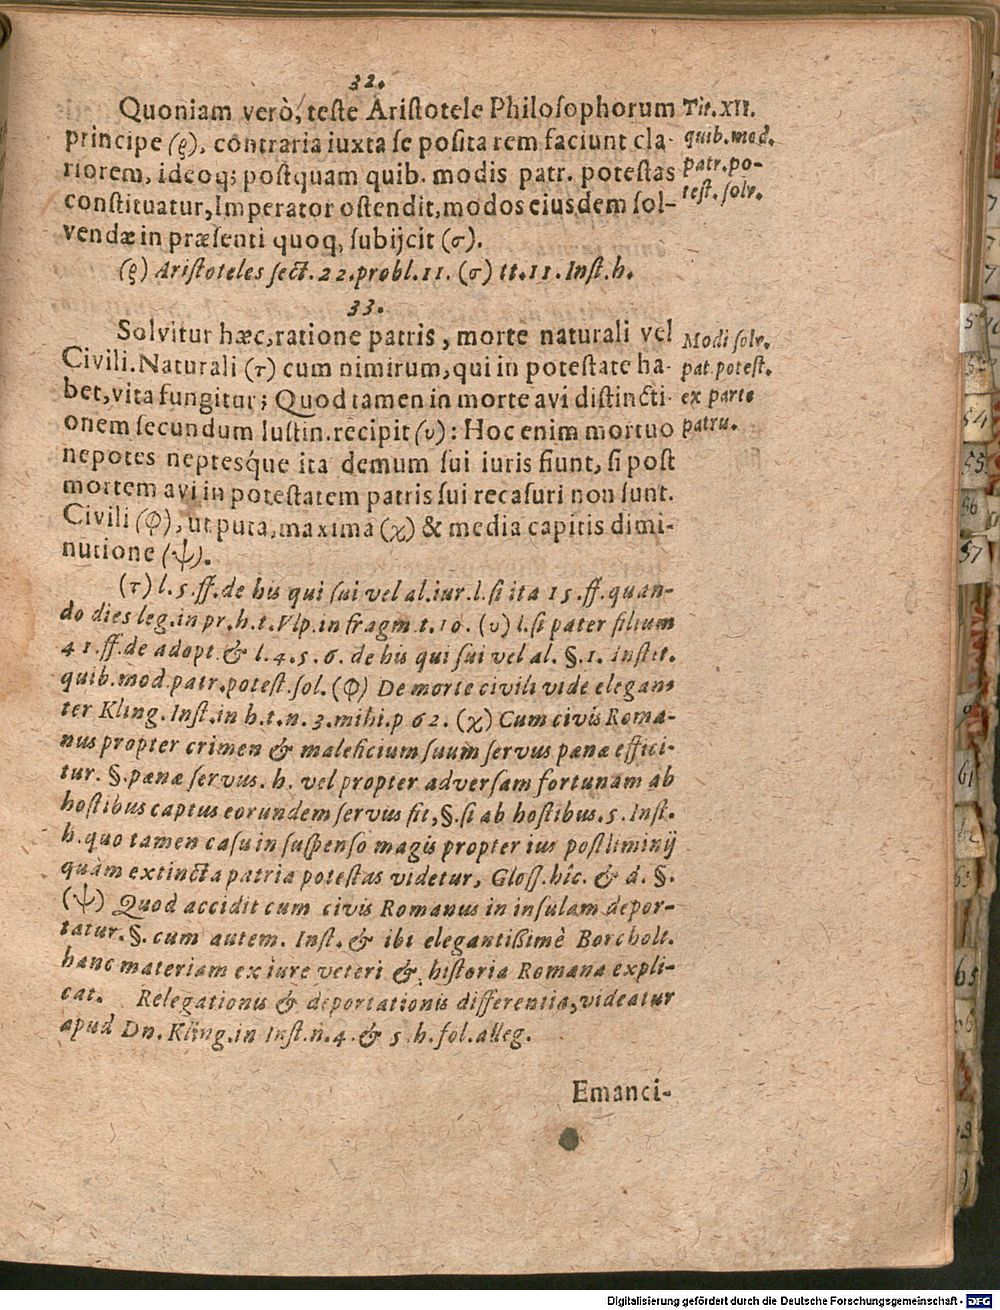 32.
Quoniam verò, teſte Ariſtotele Philoſophorum
principe (ϱ), contraria iuxta ſe poſita rem faciunt cla-
riorem, ideoq; poſtquam quib. modis patr. poteſtas
conſtituatur, Imperator oſtendit, modos eiusdem ſol-
vendæ in præſenti quoq, ſubijcit (σ).
Tit. XII.
quib. mod.
patr. po-
teſt. ſolv.
(ϱ) Ariſtoteles ſect. 22. probl. 11. (σ) tt. 11. Inſt. h.
33.
Solvitur hæc, ratione patris, morte naturali vel
Civili. Naturali (τ) cum nimirum, qui in poteſtate ha-
bet, vita fungitur; Quod tamen in morte avi diſtincti-
onem ſecundum Iuſtin. recipit (υ): Hoc enim mortuo
nepotes neptesq́ue ita demum ſui iuris fiunt, ſi poſt
mortem avi in poteſtatem patris ſui recaſuri non ſunt.
Civili (φ), ut puta, maxima (χ) & media capitis dimi-
nutione (ψ).
Modi ſolv.
pat. poteſt.
ex parte
patru.
(τ) l. 5. ff. de his qui ſui vel al. iur. l. ſi ita 15. ff. quan-
do dies leg. in pr. h. t. Vlp. in fragm. t. 10. (υ) l. ſi pater filium
41. ff. de adopt. & l. 4. 5. 6. de his qui ſui vel al. §. 1. Inſtit.
quib. mod. patr. poteſt. ſol. (φ) De morte civili vide elegan-
ter Kling. Inſt. in h. t. n. 3. mihi. p 62. (χ) Cum civis Roma-
nus propter crimen & maleficium ſuum ſervus pœnæ effici-
tur. §. pœnæ ſervus. h. vel propter adverſam fortunam ab
hoſtibus captus eorundem ſervus fit, §. ſi ab hoſtibus. 5. Inſt.
h. quo tamen caſu in ſuſpenſo magis propter ius poſtliminij
quàm extincta patria poteſtas videtur, Gloſſ. hîc. & d. §.
(ψ) Quod accidit cum civis Romanus in inſulam depor-
tatur. §. cum autem. Inſt. & ibi elegantißimè Borcholt.
hanc materiam ex iure veteri & hiſtoria Romana expli-
cat. Relegationis & deportationis differentia, videatur
apud Dn. Kling. in Inſt. n. 4. & 5. h. fol. alleg.
Emanci-
54
55
56
57
61
65
Digitalisierung gefördert durch die Deutsche Forschungsgemeinschaft - DFG